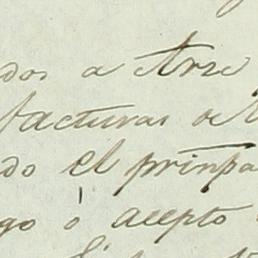 dos a Arze
facturas de
do el prinpa
go ó acepto